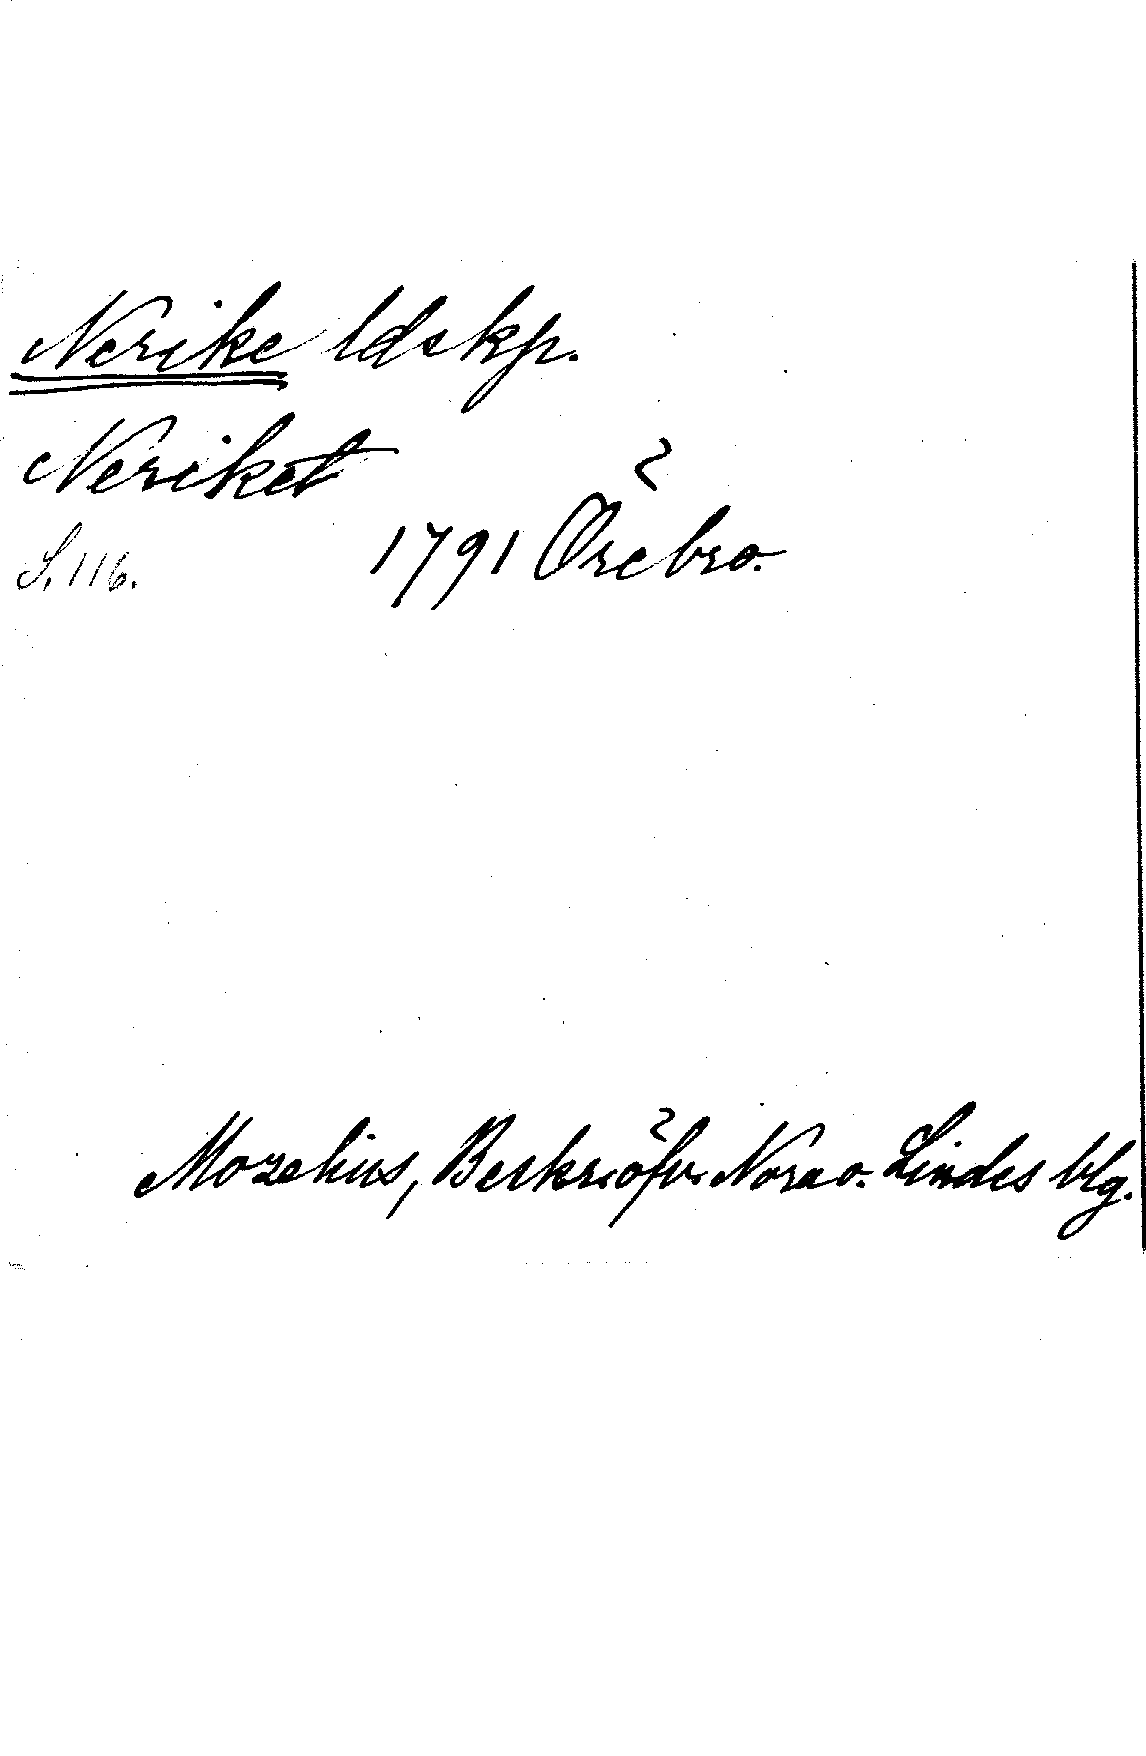 Nerike ldskp.
Neriket
S. 116.
1791 Örebro.
Mozelius, Beskr. öfv. Nora o. Lindes blg.